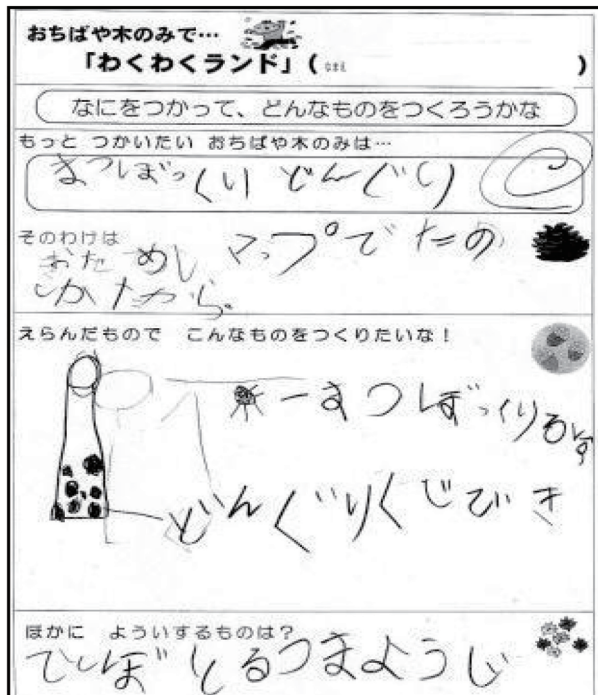 おちばや木のみで…
「わくわくランド」(なまえ )
なにをつかって、どんなものをつくろうかな
もっと つかいたい おちばや木のみは…
まつぼっくり どんぐり
そのわけは
おためし マップで たの
しかたから。
えらんだもので こんなものをつくりたいな!
まつぼっくり
どんぐりくじびき
ほかに よういするものは?
つまようじ